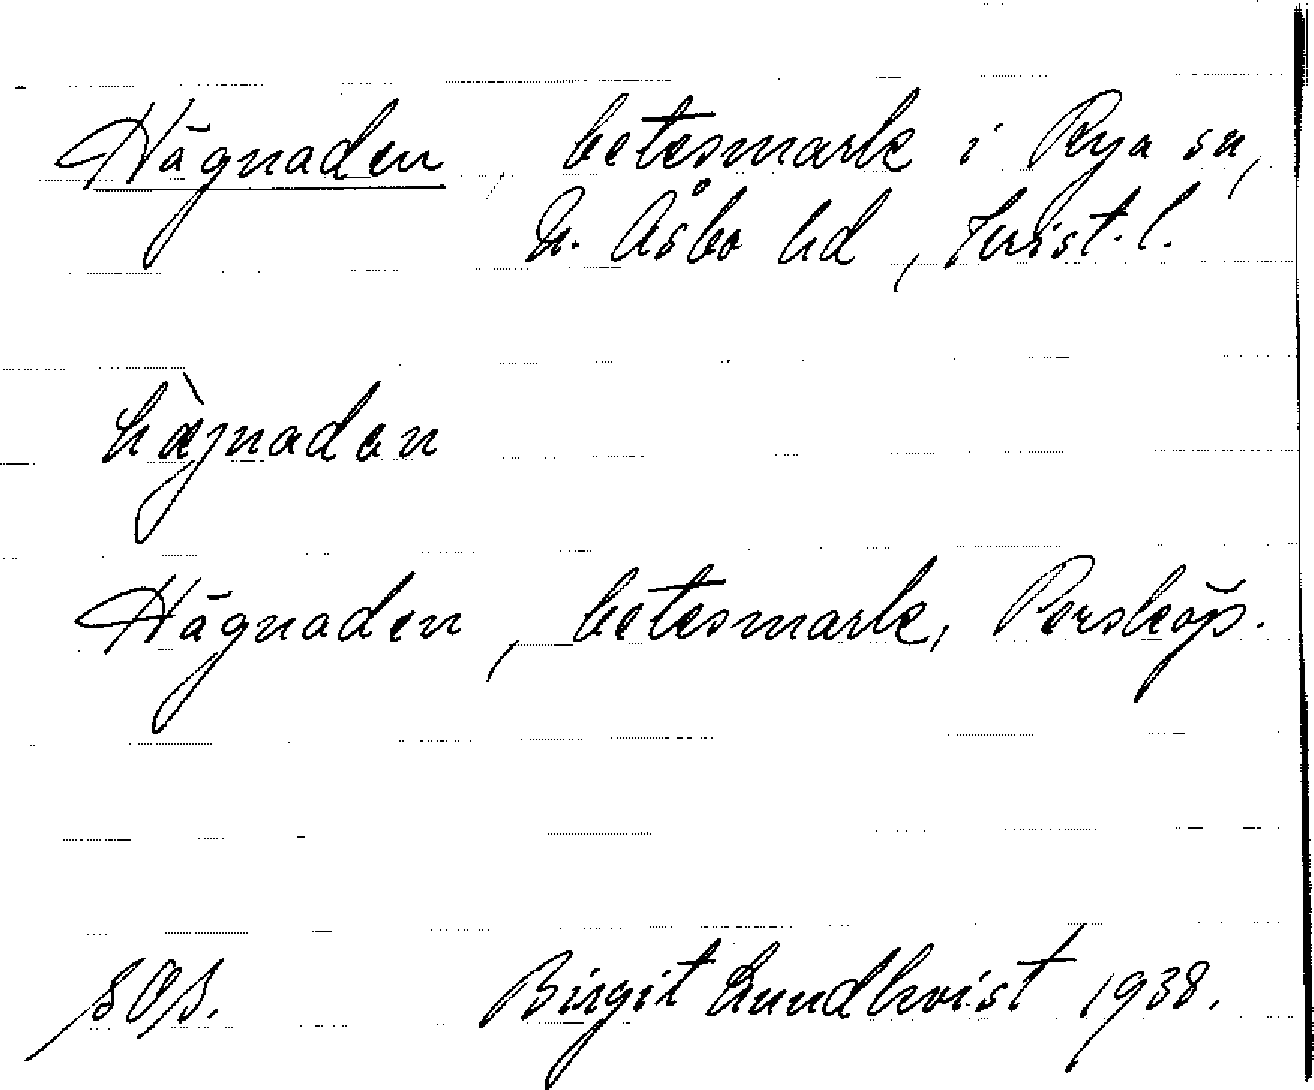 Hägnaden, betesmark i Rya sn,
N. Åsbo hd, Krist. l.
hæ̀jnadan
Hägnaden, betesmark, Persköp.
Birgit Lundkvist 1938.